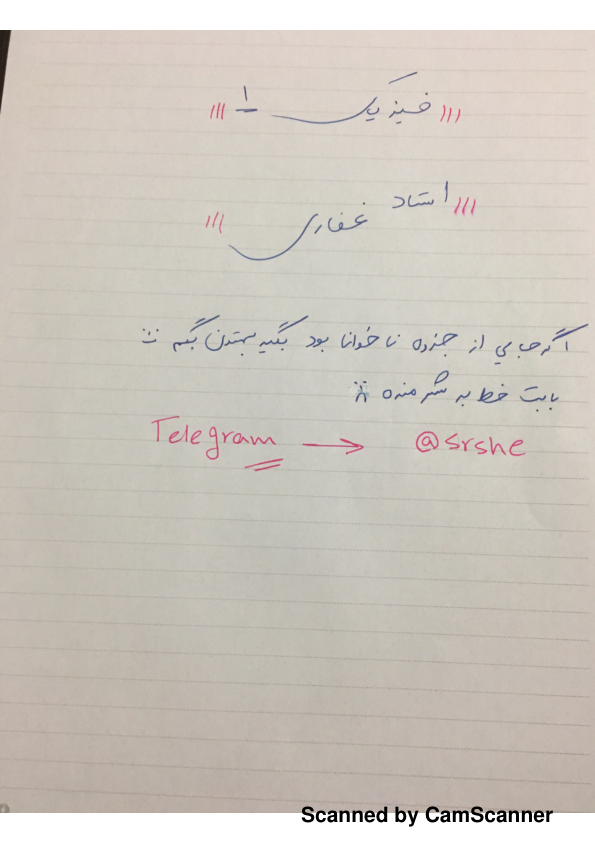 فیزیک ۱
استاد غفاری
اگر جایی از جزوه ناخوانا بود بگید بهتون بگم
بابت خط بد شرمنده
Telegram → @srshe
Scanned by CamScanner